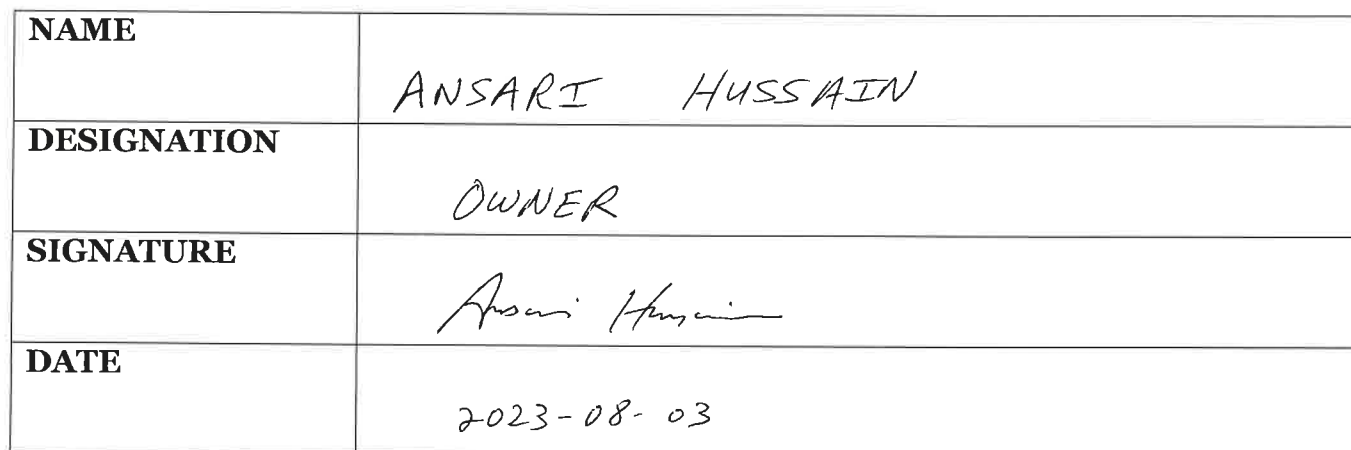 NAME
ANSARI HUSSAIN
DESIGNATION
OWNER
SIGNATURE
Ansari Hussain
DATE
2023-08-03